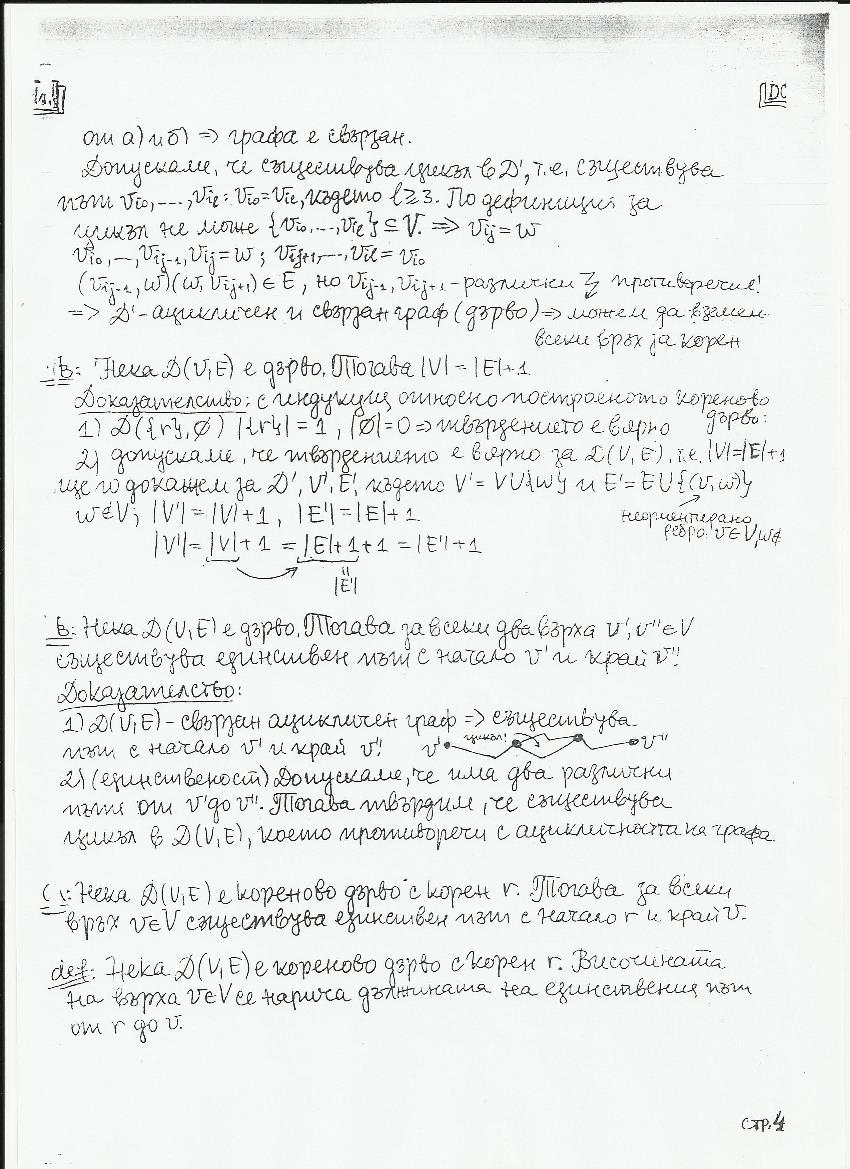 DC
от а) и б) => графа е свързан.
Допускаме, че съществува цикъл в D', т.е. съществува
път v_{i0}, ..., v_{il}: v_{i0} = v_{il}, където l ≥ 3. По дефиниция за
цикъл не може {v_{i0}, ..., v_{il}} ⊆ V. => v_{ij} = w
v_{i0}, ..., v_{ij-1}, v_{ij} = w; v_{ij+1}, ..., v_{il} = v_{i0}
(v_{ij-1}, w)(w, v_{ij+1}) ∈ E, но v_{ij-1}, v_{ij+1} - различни ↯ противоречие!
=> D' - ацикличен и свързан граф (дърво) => можем да вземем
всеки връх за корен
Тв: Нека D(V,E) е дърво. Тогава |V| = |E|+1
Доказателство: с индукция относно построеното кореново
дърво:
1) D({r}, ∅) |{r}| = 1, |∅| = 0 => твърдението е вярно
2) допускаме, че твърдението е вярно за D(V,E), т.е. |V|=|E|+1
ще го докажем за D', V', E', където V' = V∪{w} и E' = E∪{(v,w)}
w∉V; |V'| = |V|+1, |E'| = |E|+1
неориентирано
ребро. v∈V, w∉
|V'| = |V|+1 = |E|+1+1 = |E'|+1
|E'|
Тв: Нека D(V,E) е дърво. Тогава за всеки два върха v', v'' ∈ V
съществува единствен път с начало v' и край v''.
Доказателство:
1) D(V,E) - свързан ацикличен граф => съществува
път с начало v' и край v''. v' цикъл! v''
2) (единственост) Допускаме, че има два различни
пътя от v' до v''. Тогава твърдим, че съществува
цикъл в D(V,E), което противоречи с ацикличността на графа.
Сл: Нека D(V,E) е кореново дърво с корен r. Тогава за всеки
връх v∈V съществува единствен път с начало r и край v.
def: Нека D(V,E) е кореново дърво с корен r. Височината
на върха v∈V се нарича дължината на единствения път
от r до v.
СТР.4